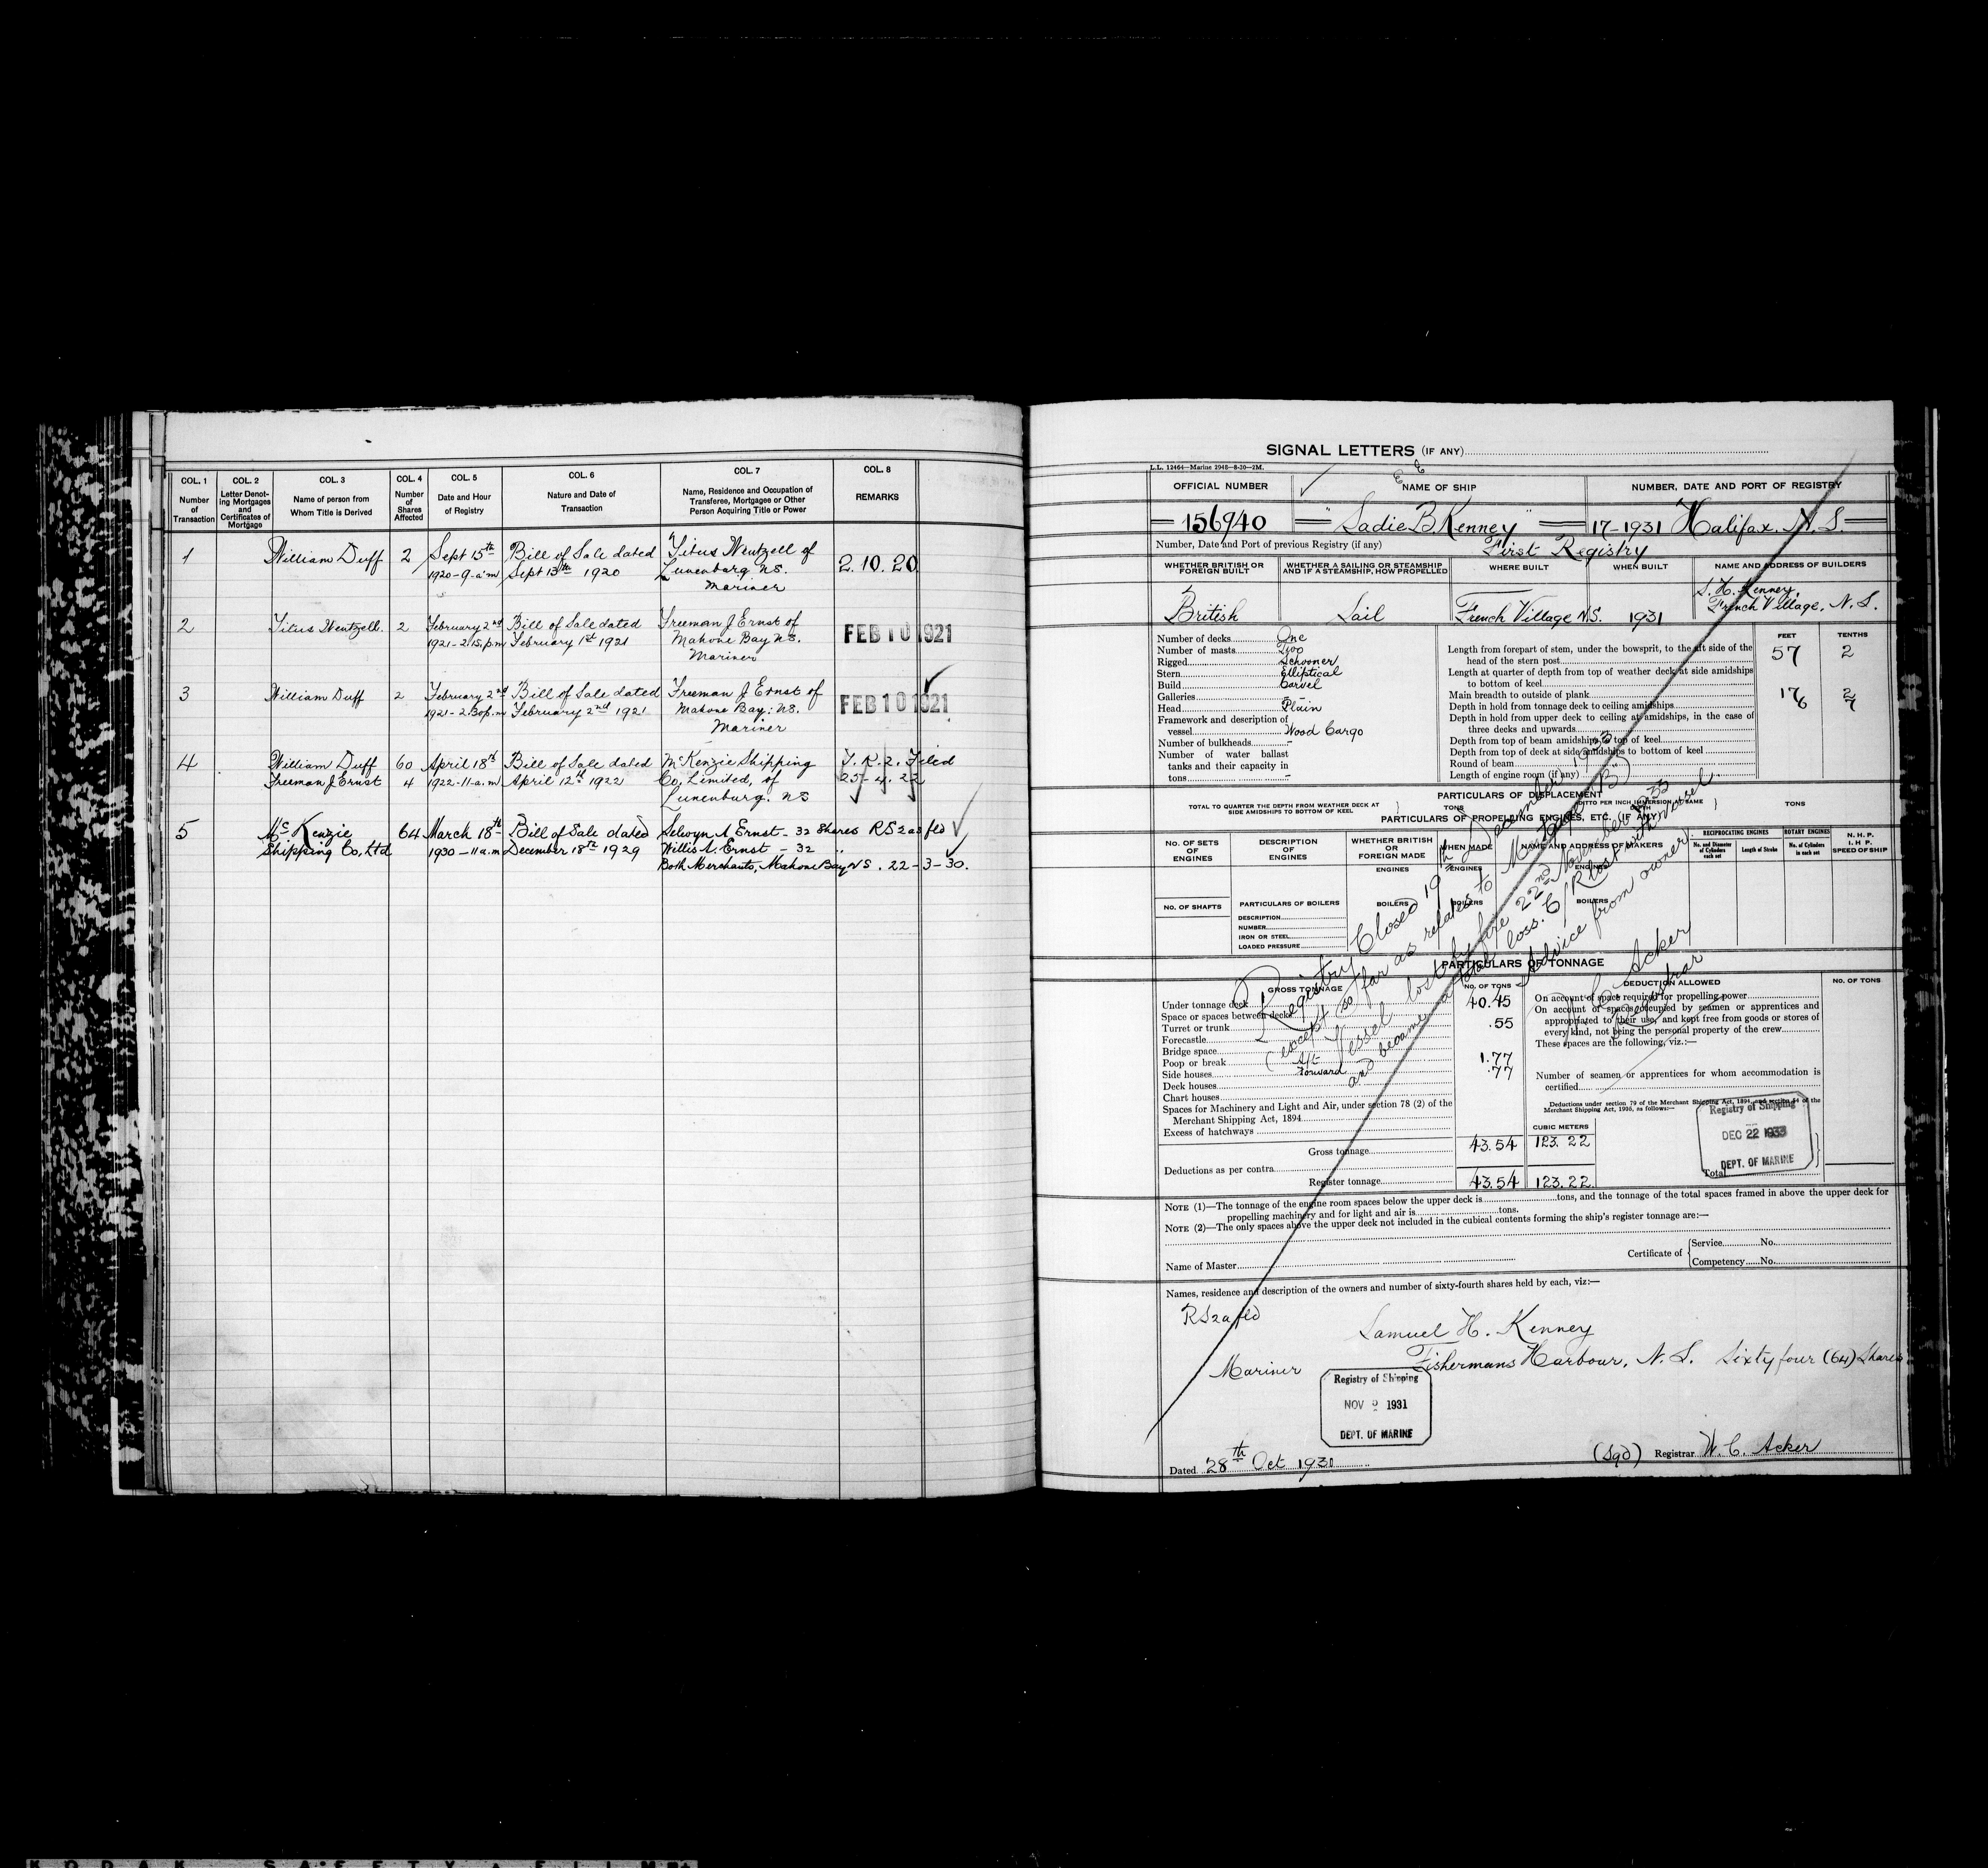 COL. 1 COL. 2 COL. 3 COL. 4 COL. 5 COL. 6 COL. 7 COL. 8
Number of Transaction
Letter Denoting Mortgages and Certificates of Mortgage
Name of person from Whom Title is Derived
Number of Shares Affected
Date and Hour of Registry
Nature and Date of Transaction
Name, Residence and Occupation of Transferee, Mortgagee or Other Person Acquiring Title or Power
REMARKS
1 William Duff 2 Sept 15th Bill of Sale dated Titus Wentzell of 2.10.20
1920-9-a.m Sept 13th 1920 Lunenburg NS.
Mariner
2 Titus Wentzell. 2 February 2nd Bill of Sale dated Freeman J Ernst of FEB 10 1921
1921-2.15.p.m February 1st 1921 Mahone Bay NS.
Mariner
3 William Duff 2 February 2nd Bill of Sale dated Freeman J Ernst of FEB 10 1921
1921-2.30p.m February 2nd 1921 Mahone Bay. NS.
Mariner
4 William Duff 60 April 18th Bill of Sale dated McKenzie Shipping T.R.2. Filed
Freeman J Ernst 4 1922-11-a.m April 12th 1922 Co, Limited, of 25-4.22
Lunenburg. NS
5 Mc Kenzie 64 March 18th Bill of Sale dated Selwyn A Ernst - 32 Shares RS2a fld
Shipping Co, Ltd 1930-11a.m December 18th 1929 Willis A. Ernst - 32 "
Both Merchants, Mahone Bay NS. 22-3-30.
SIGNAL LETTERS (IF ANY)
L.L. 12464—Marine 2948—8-30—2M.
OFFICIAL NUMBER NAME OF SHIP NUMBER, DATE AND PORT OF REGISTRY
156940 "Sadie B. Kenney" 17-1931 Halifax. N.S.
Number, Date and Port of previous Registry (if any) First Registry
WHETHER BRITISH OR FOREIGN BUILT
WHETHER A SAILING OR STEAMSHIP AND IF A STEAMSHIP, HOW PROPELLED
WHERE BUILT WHEN BUILT NAME AND ADDRESS OF BUILDERS
British Sail French Village N.S. 1931 S. H. Kenney, French Village, N.S.
Number of decks One
Number of masts Two
Rigged Schooner
Stern Elliptical
Build Carvel
Galleries -
Head Plain
Framework and description of vessel Wood Cargo
Number of bulkheads -
Number of water ballast tanks and their capacity in tons -
FEET TENTHS
Length from forepart of stem, under the bowsprit, to the aft side of the head of the stern post 57 2
Length at quarter of depth from top of weather deck at side amidships to bottom of keel
Main breadth to outside of plank 17 2
Depth in hold from tonnage deck to ceiling amidships 6 7
Depth in hold from upper deck to ceiling at amidships, in the case of three decks and upwards
Depth from top of beam amidships to top of keel
Depth from top of deck at side amidships to bottom of keel
Round of beam
Length of engine room (if any)
PARTICULARS OF DISPLACEMENT
TOTAL TO QUARTER THE DEPTH FROM WEATHER DECK AT SIDE AMIDSHIPS TO BOTTOM OF KEEL TONS DITTO PER INCH IMMERSION AT SAME DEPTH TONS
PARTICULARS OF PROPELLING ENGINES, ETC. (IF ANY)
NO. OF SETS OF ENGINES
DESCRIPTION OF ENGINES
WHETHER BRITISH OR FOREIGN MADE
WHEN MADE
NAME AND ADDRESS OF MAKERS
RECIPROCATING ENGINES
No. and Diameter of Cylinders each set
Length of Stroke
ROTARY ENGINES
No. of Cylinders in each set
N. H. P.
I. H. P.
SPEED OF SHIP
ENGINES ENGINES ENGINES
NO. OF SHAFTS PARTICULARS OF BOILERS BOILERS BOILERS BOILERS
DESCRIPTION
NUMBER
IRON OR STEEL
LOADED PRESSURE
Registry Closed 19th December 1933
(except so far as relates to Mortgage "B")
Vessel lost by fire 22nd November 1933
and became a total loss. C/R lost with vessel
Advice from owner.
W. C. Acker
Registrar
PARTICULARS OF TONNAGE
GROSS TONNAGE NO. OF TONS DEDUCTION ALLOWED NO. OF TONS
Under tonnage deck 40.45
Space or spaces between decks
Turret or trunk .55
Forecastle
Bridge space
Poop or break Aft 1.77
Side houses Forward .77
Deck houses
Chart houses
Spaces for Machinery and Light and Air, under section 78 (2) of the Merchant Shipping Act, 1894
Excess of hatchways
CUBIC METERS
Gross tonnage 43.54 123.22
Deductions as per contra
Register tonnage 43.54 123.22.
On account of space required for propelling power
On account of spaces occupied by seamen or apprentices and appropriated to their use, and kept free from goods or stores of every kind, not being the personal property of the crew
These spaces are the following, viz.:—
Number of seamen or apprentices for whom accommodation is certified
Deductions under section 79 of the Merchant Shipping Act, 1894, and section 54 of the Merchant Shipping Act, 1906, as follows:—
Registry of Shipping
DEC 22 1933
DEPT. OF MARINE
Total
NOTE (1)—The tonnage of the engine room spaces below the upper deck is tons, and the tonnage of the total spaces framed in above the upper deck for
propelling machinery and for light and air is tons.
NOTE (2)—The only spaces above the upper deck not included in the cubical contents forming the ship's register tonnage are:—
Name of Master Certificate of Service No.
Competency No.
Names, residence and description of the owners and number of sixty-fourth shares held by each, viz:—
RS2a fld
Samuel H. Kenney
Mariner Fishermans Harbour, N.S. Sixty four (64) Shares
Registry of Shipping
NOV 1931
DEPT. OF MARINE
Dated 28th Oct 1931 (Sgd) Registrar W. C. Acker
KODAK SAFETY FILM